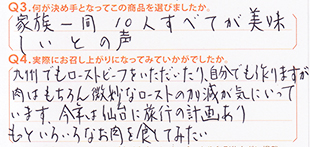 Q3.何が決め手となってこの商品を選びましたか。
家族一同 10人すべてが美味
しいとの声
Q4.実際にお召し上がりになってみていかがでしたか。
九州でもローストビーフをいただいたり、自分でも作りますが
肉はもちろん微妙なローストの加減が気にいって
います。今年は仙台に旅行の計画あり
もといろいろなお肉を食してみたい